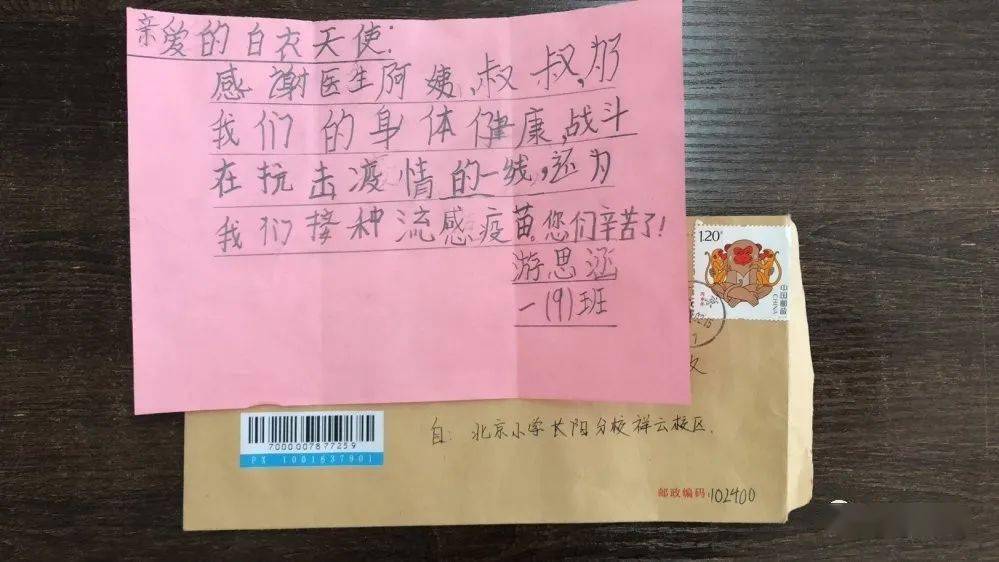 亲爱的白衣天使:
感谢医生阿姨、叔叔,为
我们的身体健康,战斗
在抗击疫情的一线,还为
我们接种流感疫苗。您们辛苦了!
游思涵
一(9)班
1.20
中国邮政
CHINA
自: 北京小学长阳分校祥云校区.
7000007877259
PX 1001637901
邮政编码:102400